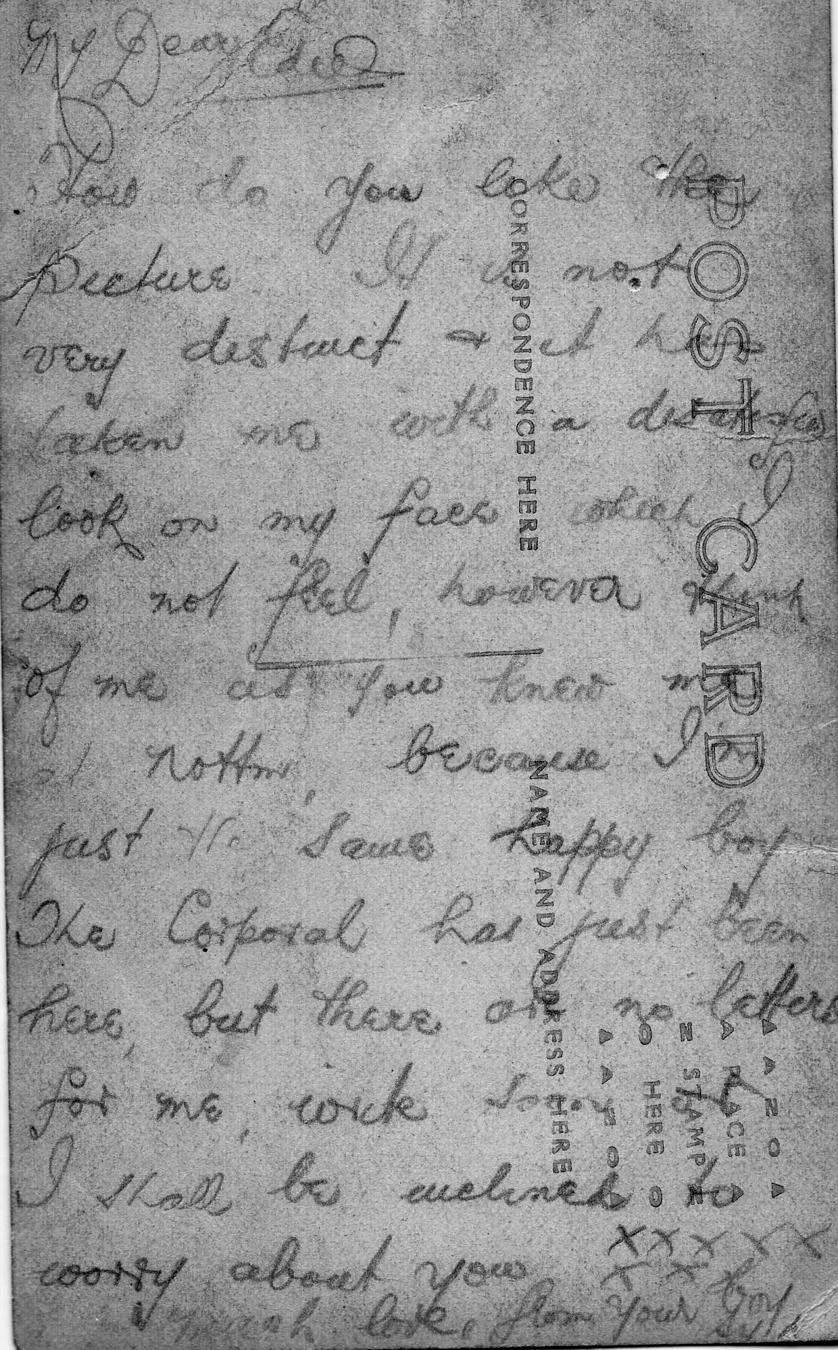 My Dear Edie
How do you like the
picture It is not
very distinct & it has
taken me with a dissatisfied
look on my face which I
do not feel, however think
of me as you knew me
at Nottm, because I'm
just the same happy boy
The Corporal has just been
here, but there are no letters
for me, write soon or
I shall be inclined to
worry about you
xxxxx
xxx
much love, from your boy
POST CARD
CORRESPONDENCE HERE
NAME AND ADDRESS HERE
PLACE
STAMP
HERE